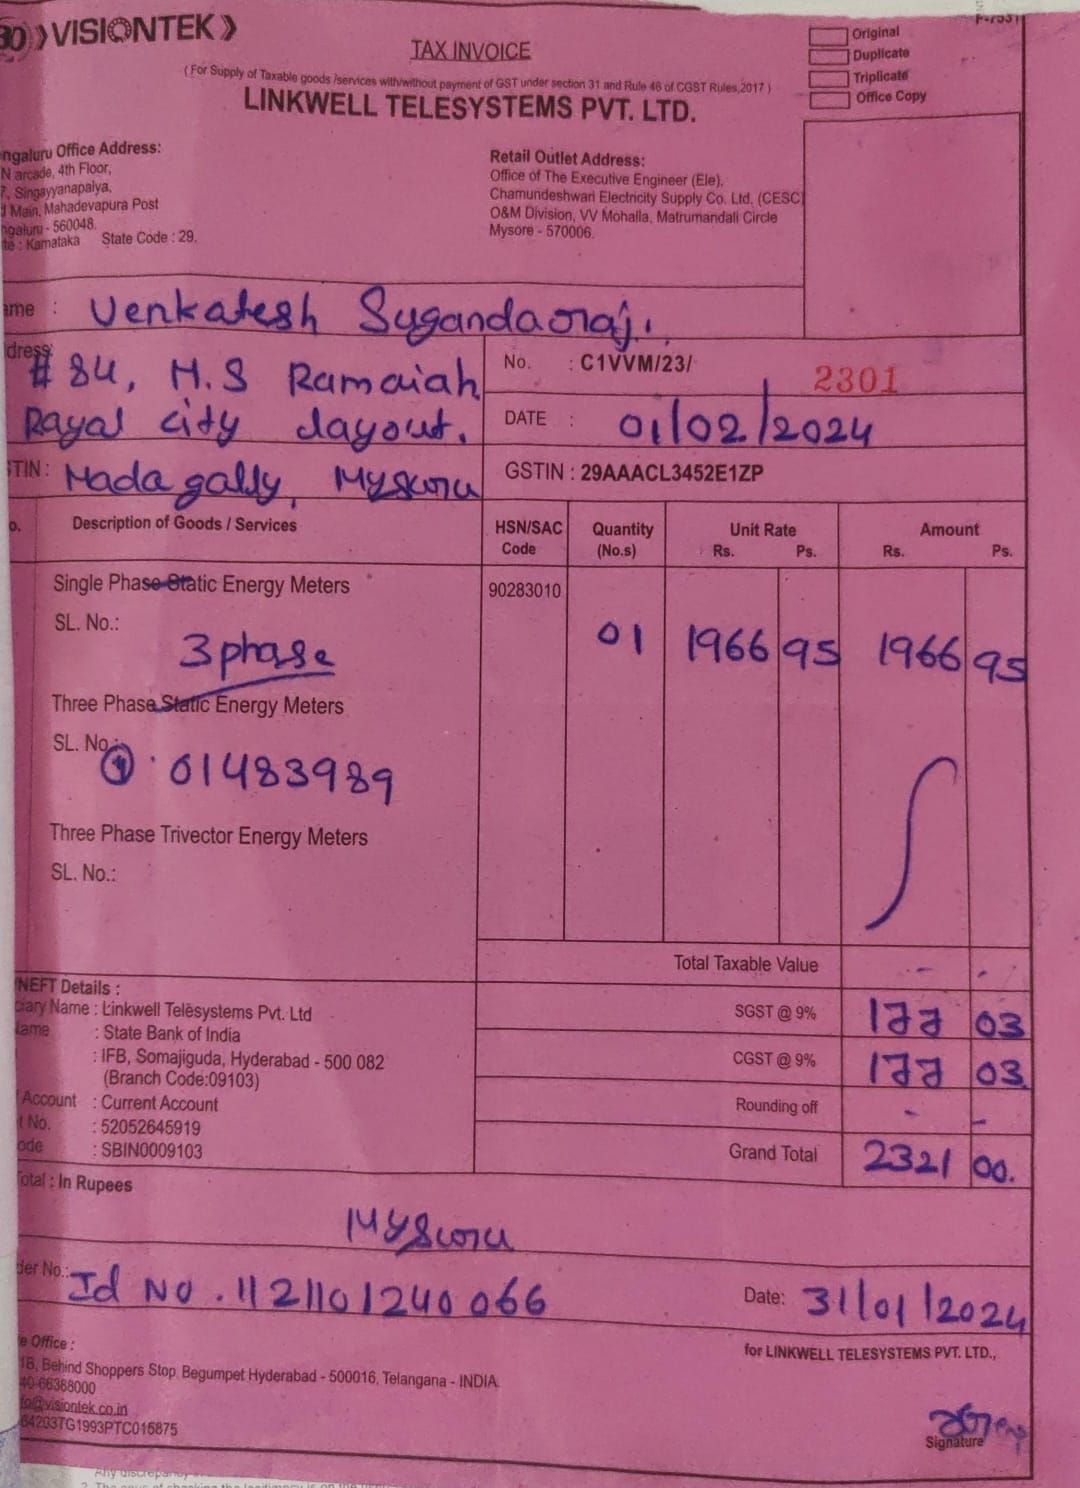 VISIONTEK
F-7531
TAX INVOICE
Original
Duplicate
Triplicate
Office Copy
( For Supply of Taxable goods /services with/without payment of GST under section 31 and Rule 46 of CGST Rules,2017 )
LINKWELL TELESYSTEMS PVT. LTD.
ngaluru Office Address:
N arcade, 4th Floor,
7, Singayyanapalya,
Main, Mahadevapura Post
ngaluru - 560048.
te : Karnataka State Code : 29.
Retail Outlet Address:
Office of The Executive Engineer (Ele),
Chamundeshwari Electricity Supply Co. Ltd, (CESC)
O&M Division, VV Mohalla, Matrumandali Circle
Mysore - 570006.
ame : Venkatesh Sugandaoraj.
dress: # 84, M.S Ramaiah
Rayal city layout.
STIN : Madagally, Mysuru
No. : C1VVM/23/ 2301
DATE : 01/02/2024
GSTIN : 29AAACL3452E1ZP
o. Description of Goods / Services HSN/SAC Code Quantity (No.s) Unit Rate Rs. Ps. Amount Rs. Ps.
Single Phase Static Energy Meters 90283010
SL. No.:
3 phase 01 1966 95 1966 95
Three Phase Static Energy Meters
SL. No.:
① : 01483989
Three Phase Trivector Energy Meters
SL. No.:
Total Taxable Value - -
SGST @ 9% 177 03
CGST @ 9% 177 03
Rounding off - -
Grand Total 2321 00.
NEFT Details :
ciary Name : Linkwell Telesystems Pvt. Ltd
Name : State Bank of India
: IFB, Somajiguda, Hyderabad - 500 082
(Branch Code:09103)
Account : Current Account
t No. : 52052645919
ode : SBIN0009103
Total : In Rupees
Mysuru
der No.: Id No. 1121101240066 Date: 31/01/2024
e Office :
1B, Behind Shoppers Stop, Begumpet Hyderabad - 500016, Telangana - INDIA.
40-66388000
fo@visiontek.co.in
64203TG1993PTC015875
for LINKWELL TELESYSTEMS PVT. LTD.,
Signature
Any discrepancy